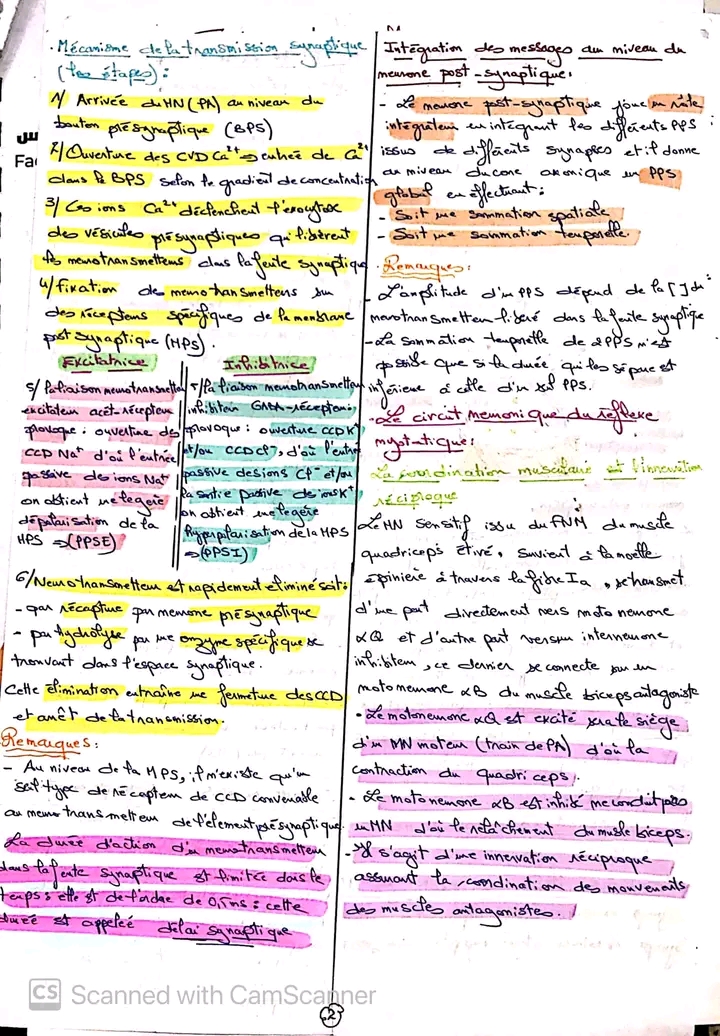 Mécanisme de la transmission synaptique
(les étapes) :
1/ Arrivée du MN (PA) au niveau du
bouton présynaptique (BPS)
2/ Ouverture des CVD Ca²⁺ ⇒ entrée de Ca²⁺
dans le BPS selon le gradient de concentration
3/ Ces ions Ca²⁺ déclenchent l'exocytose
des vésicules présynaptiques qui libèrent
les neurotransmetteurs dans la fente synaptique
4/ fixation des neurotransmetteurs sur
des récepteurs spécifiques de la membrane
post synaptique (MPS).
Excitatrice
5/ la liaison neurotransmetteur
excitateur acét-récepteur
provoque : ouverture des
CCD Na⁺ d'où l'entrée
passive des ions Na⁺
on obtient une légère
dépolarisation de la
MPS ⇒ (PPSE)
Inhibitrice
5/ la liaison neurotransmetteur
inhibiteur GABA-récepteur
provoque : ouverture CCD K⁺
et/ou CCD Cl⁻, d'où l'entrée
passive des ions Cl⁻ et/ou
la sortie passive des ions K⁺
on obtient une légère
hyperpolarisation de la MPS
⇒ (PPSI)
6/ Neurotransmetteur est rapidement eliminé soit :
- par récapture par neurone présynaptique
- par hydrolyse par une enzyme spécifique se
trouvant dans l'espace synaptique.
Cette élimination entraîne une fermeture des CCD
et arrêt de la transmission.
Remarques :
- Au niveau de la MPS, il n'existe qu'un
seul type de récepteur de CCD convenable
au neurotransmetteur de l'élement présynaptique.
La durée d'action d'un neurotransmetteur
dans la fente synaptique est limitée dans le
temps : elle est de l'ordre de 0,5ms : cette
durée est appelée délai synaptique
Intégration des messages au niveau du
neurone post-synaptique :
- Le neurone post-synaptique joue un rôle
intégrateur en intégrant les différents PPS
issus de différents synapses et il donne
au niveau du cone axonique un PPS
global en effectuant :
- Soit une sommation spatiale
- Soit une sommation temporelle.
Remarques :
- L'amplitude d'un PPS dépend de la [ ] du
neurotransmetteur libéré dans la fente synaptique
- La sommation temporelle de 2 PPS n'est
possible que si la durée qui les sépare est
inférieure à celle d'un seul PPS.
- Le circuit neuronique du reflexe
myotatique :
La coordination musculaire et l'innervation
réciproque
Le MN Sensitif issu du FNM du muscle
quadriceps étiré, survient à la moelle
épinière à travers la fibre Ia, se transmet
d'une part directement vers motoneurone
αQ et d'autre part vers un interneurone
inhibiteur, ce dernier se connecte sur un
motoneurone αB du muscle biceps antagoniste
• Le motoneurone αQ est excité sera le siège
d'un MN moteur (train de PA) d'où la
contraction du quadriceps.
• Le motoneurone αB est inhibé ne conduit pas
un MN d'où le relâchement du muscle biceps.
- Il s'agit d'une innervation réciproque
assurant la coordination des mouvements
des muscles antagonistes.
CS Scanned with CamScanner
2